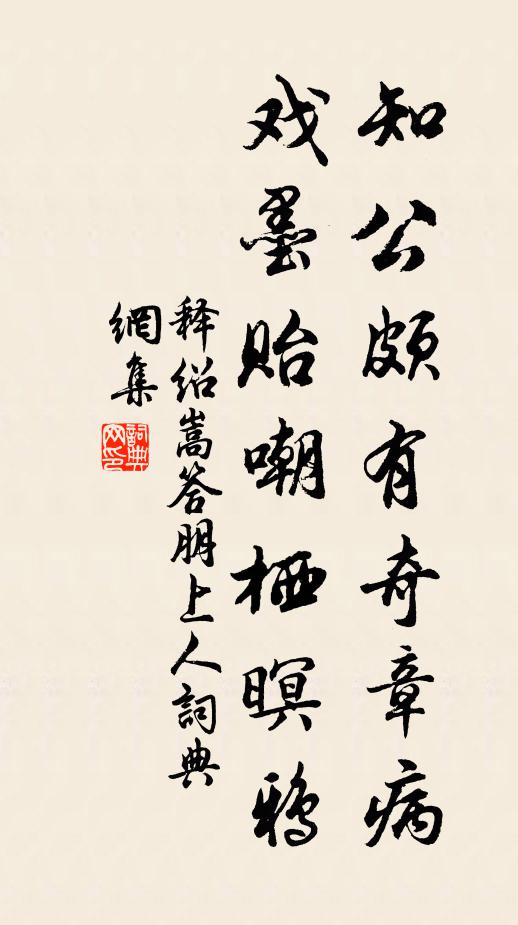 知公颇有奇章病
戏墨贻嘲栖暝鸦
释绍嵩答朋上人詞典
網集
詞典網印